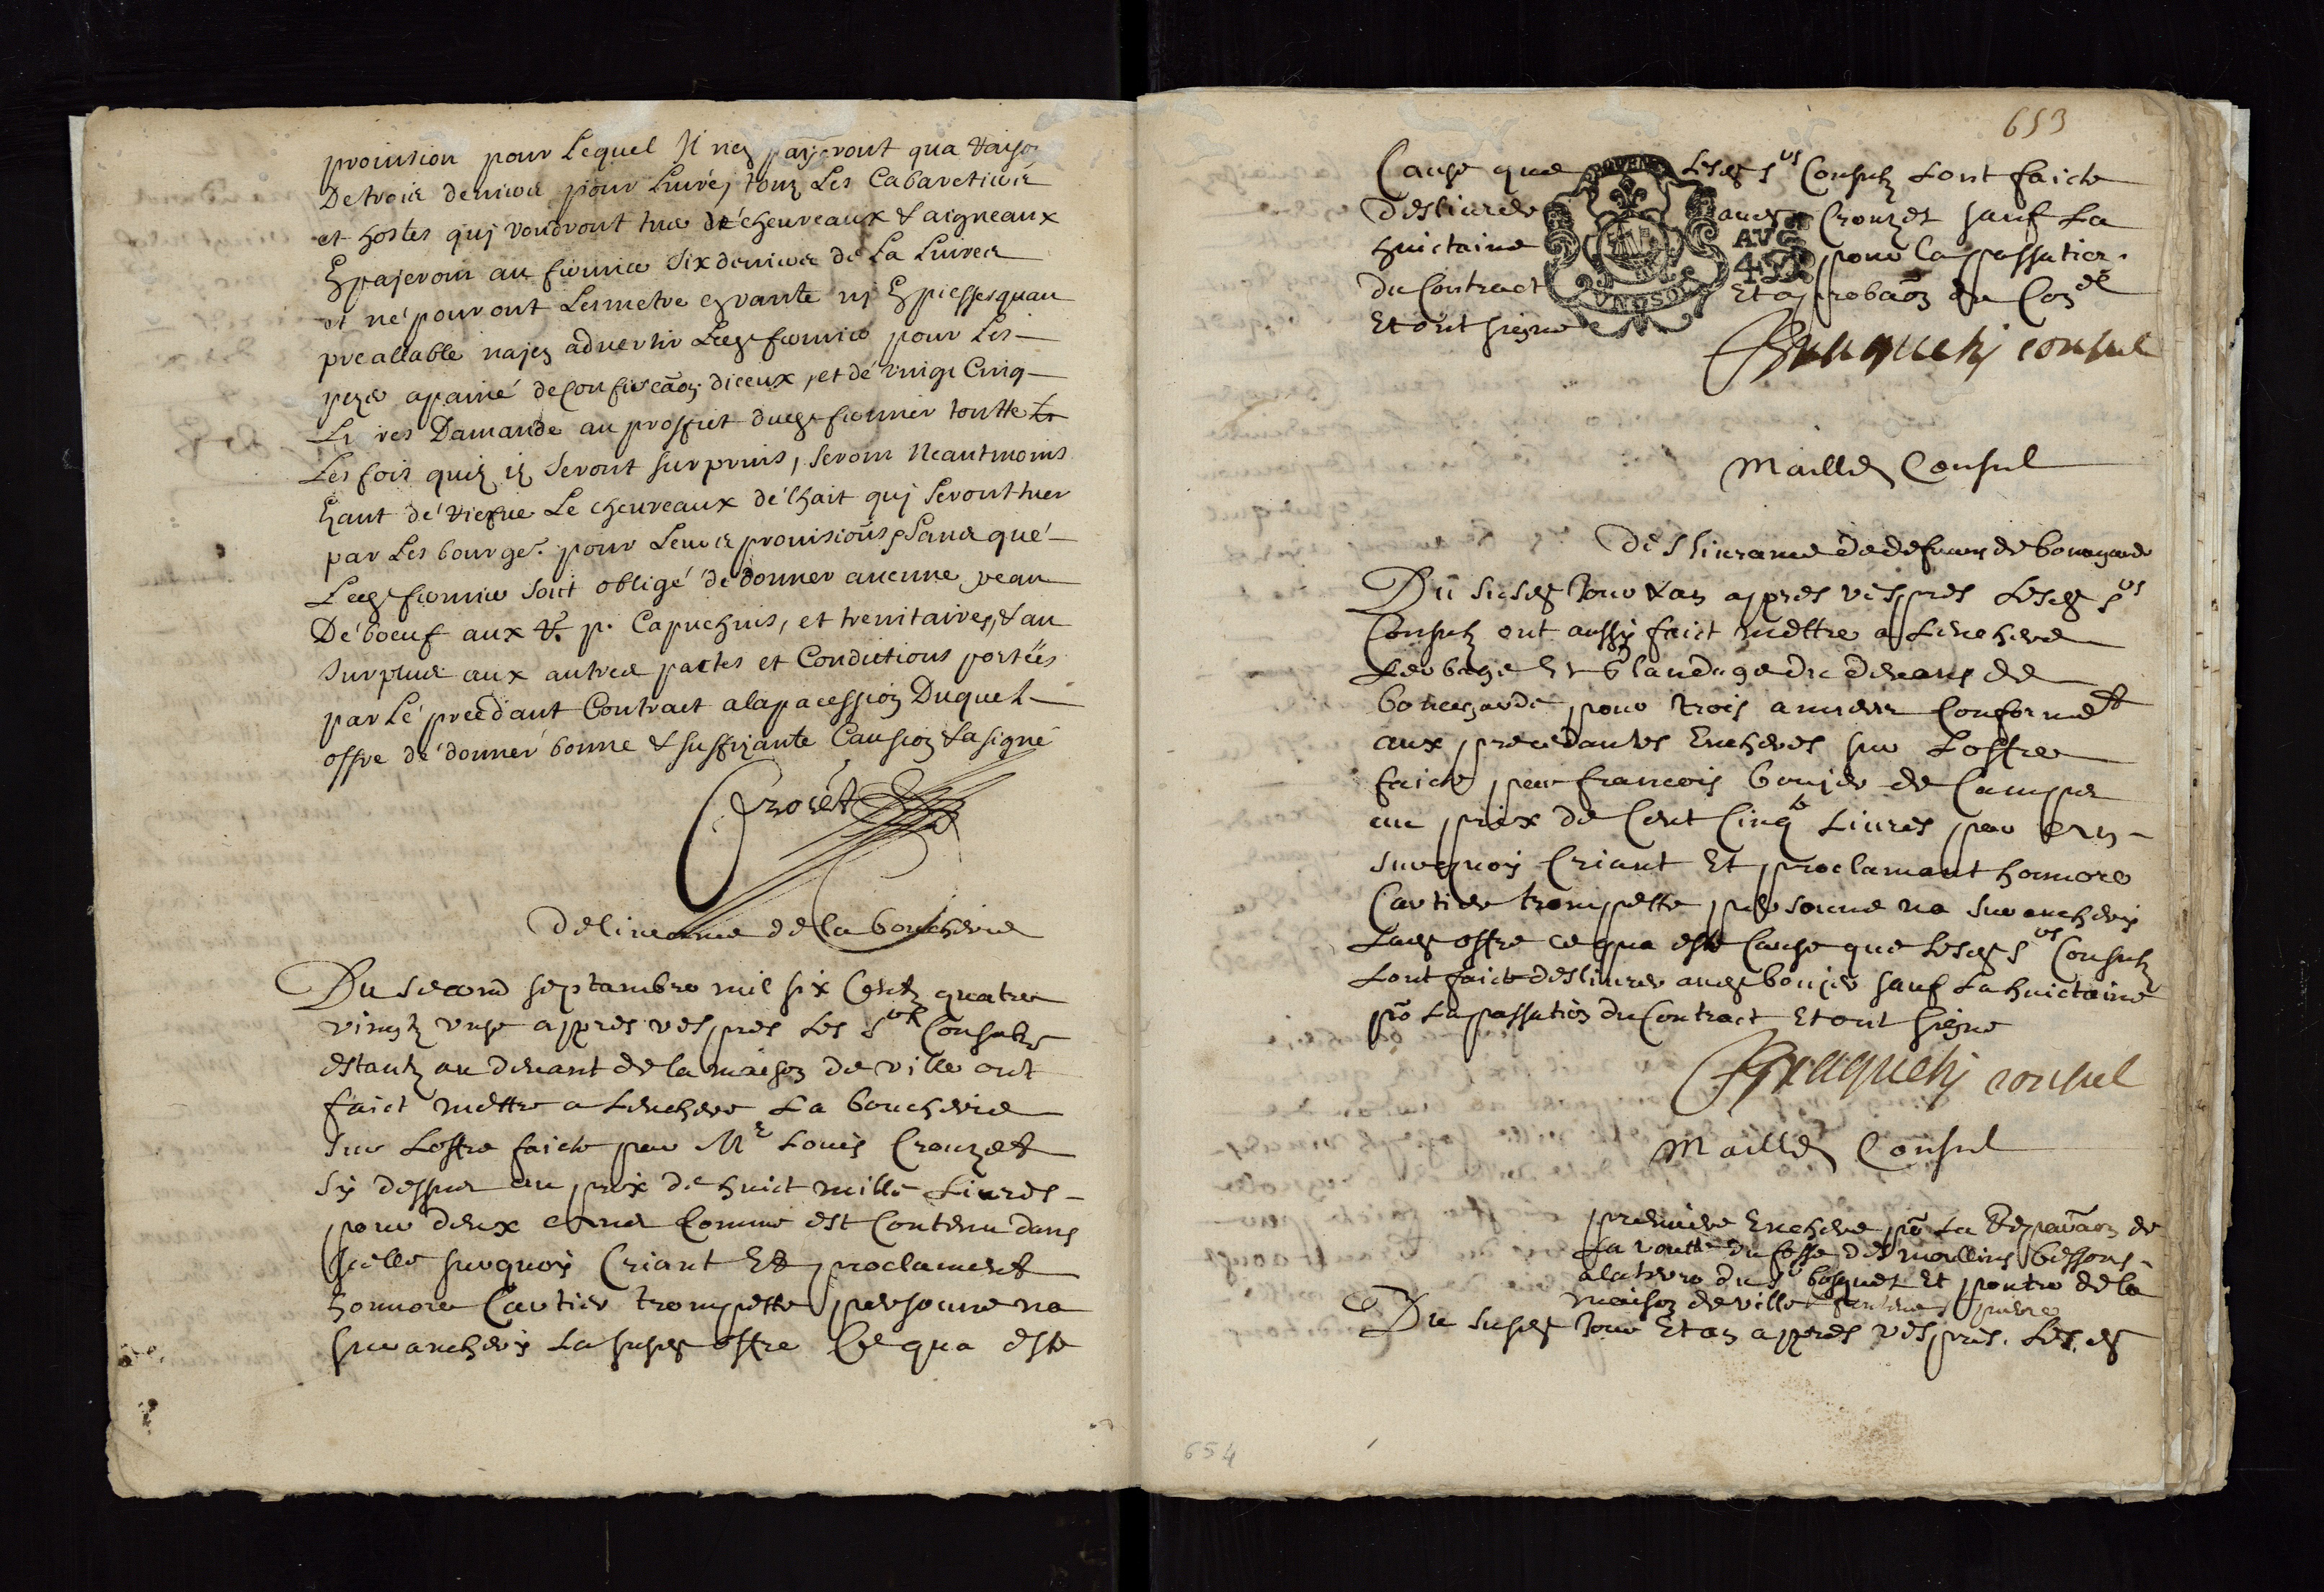 prouision pour Lequel Il nez payeront qua raison
De trois deniers pour Liuré, tous Les Cabaretiers
et hostes quj voudront tuer de cheureaux & aigneaux
payeront au fermier six deniers de La Liurer
et né pouront Les metre en vante nj piesses quau
preallable najen aduertir Led fermier pour Les
pezer apainé de Confiscaon diceux, et dé vingt Cinq
Liures Damande au profict dud fermier toutte
Les fois quiz seront surprins, seront Neantmoins
Le cheureaux dé lhait quj seront tuer
par Les bourges pour Leurs prouisions, Sans qué
Led fermier soit obligé dé donner aucune peau
Dé boeuf aux R. p. Capuchins, et trenitaires, & au
surplus aux autres pactes et Condictions portées
par Lé precedant Contract alapacession Duquel
offre dé donner bonne & suffizante Caution & a signé
Crozét
Deliurance de la boucherie
Du second septambre mil six Centz quatre
vingtz vnze appres vespres Les srs Consulz
estantz au deuant de la maison de ville ont
faict mettre a Lenchere La boucherie
sur Loffre faicte par Mr Louis Crouzet
sy dessus au prix de huict mille Liures
pour deux années Comme est Contenu dans
jcelle surquoy Criant Et proclament
honnore Cartier trompette personne na
surancherj La susd offre Ce qua este
653
Cause que Lesd srs Consulz Lont faicte
desliurer aud Crouzet sauf La
huictaine pour La passation
du Contract Et aprobaon du Con.el
Et ont signe
Braquety consul
AVG
Maille Consul
Desliurance de defens de bonegarde
Du susd Jour & an appres vespres Lesd srs
Consulz ont aussy faict mettre a Lenchere
Lerbage Et Glandage du deuens de
bonegarde pour trois années Conformet
aux precedantes Encheres sur Loffre
faicte par francois boujer de Camps
au prix de Cent Cinq.te Liures par an
surquoy Criant Et proclamant honnore
Cartier trompette personne na surancherj
Lad offre ce qua este Cause que Lesd srs Consulz
Lont faicte desliurer aud boujer sauf La huictaine
po La passation du Contract Et ont signe
Braquety consul
Maille Consul
premiere Enchere po La Reparaon de
La voutte du fosse des moullins bessons
a la terre du sr bosquet Et poutre de la
maison de ville
Du susd Jour Et an appres vespres. Lesd
654